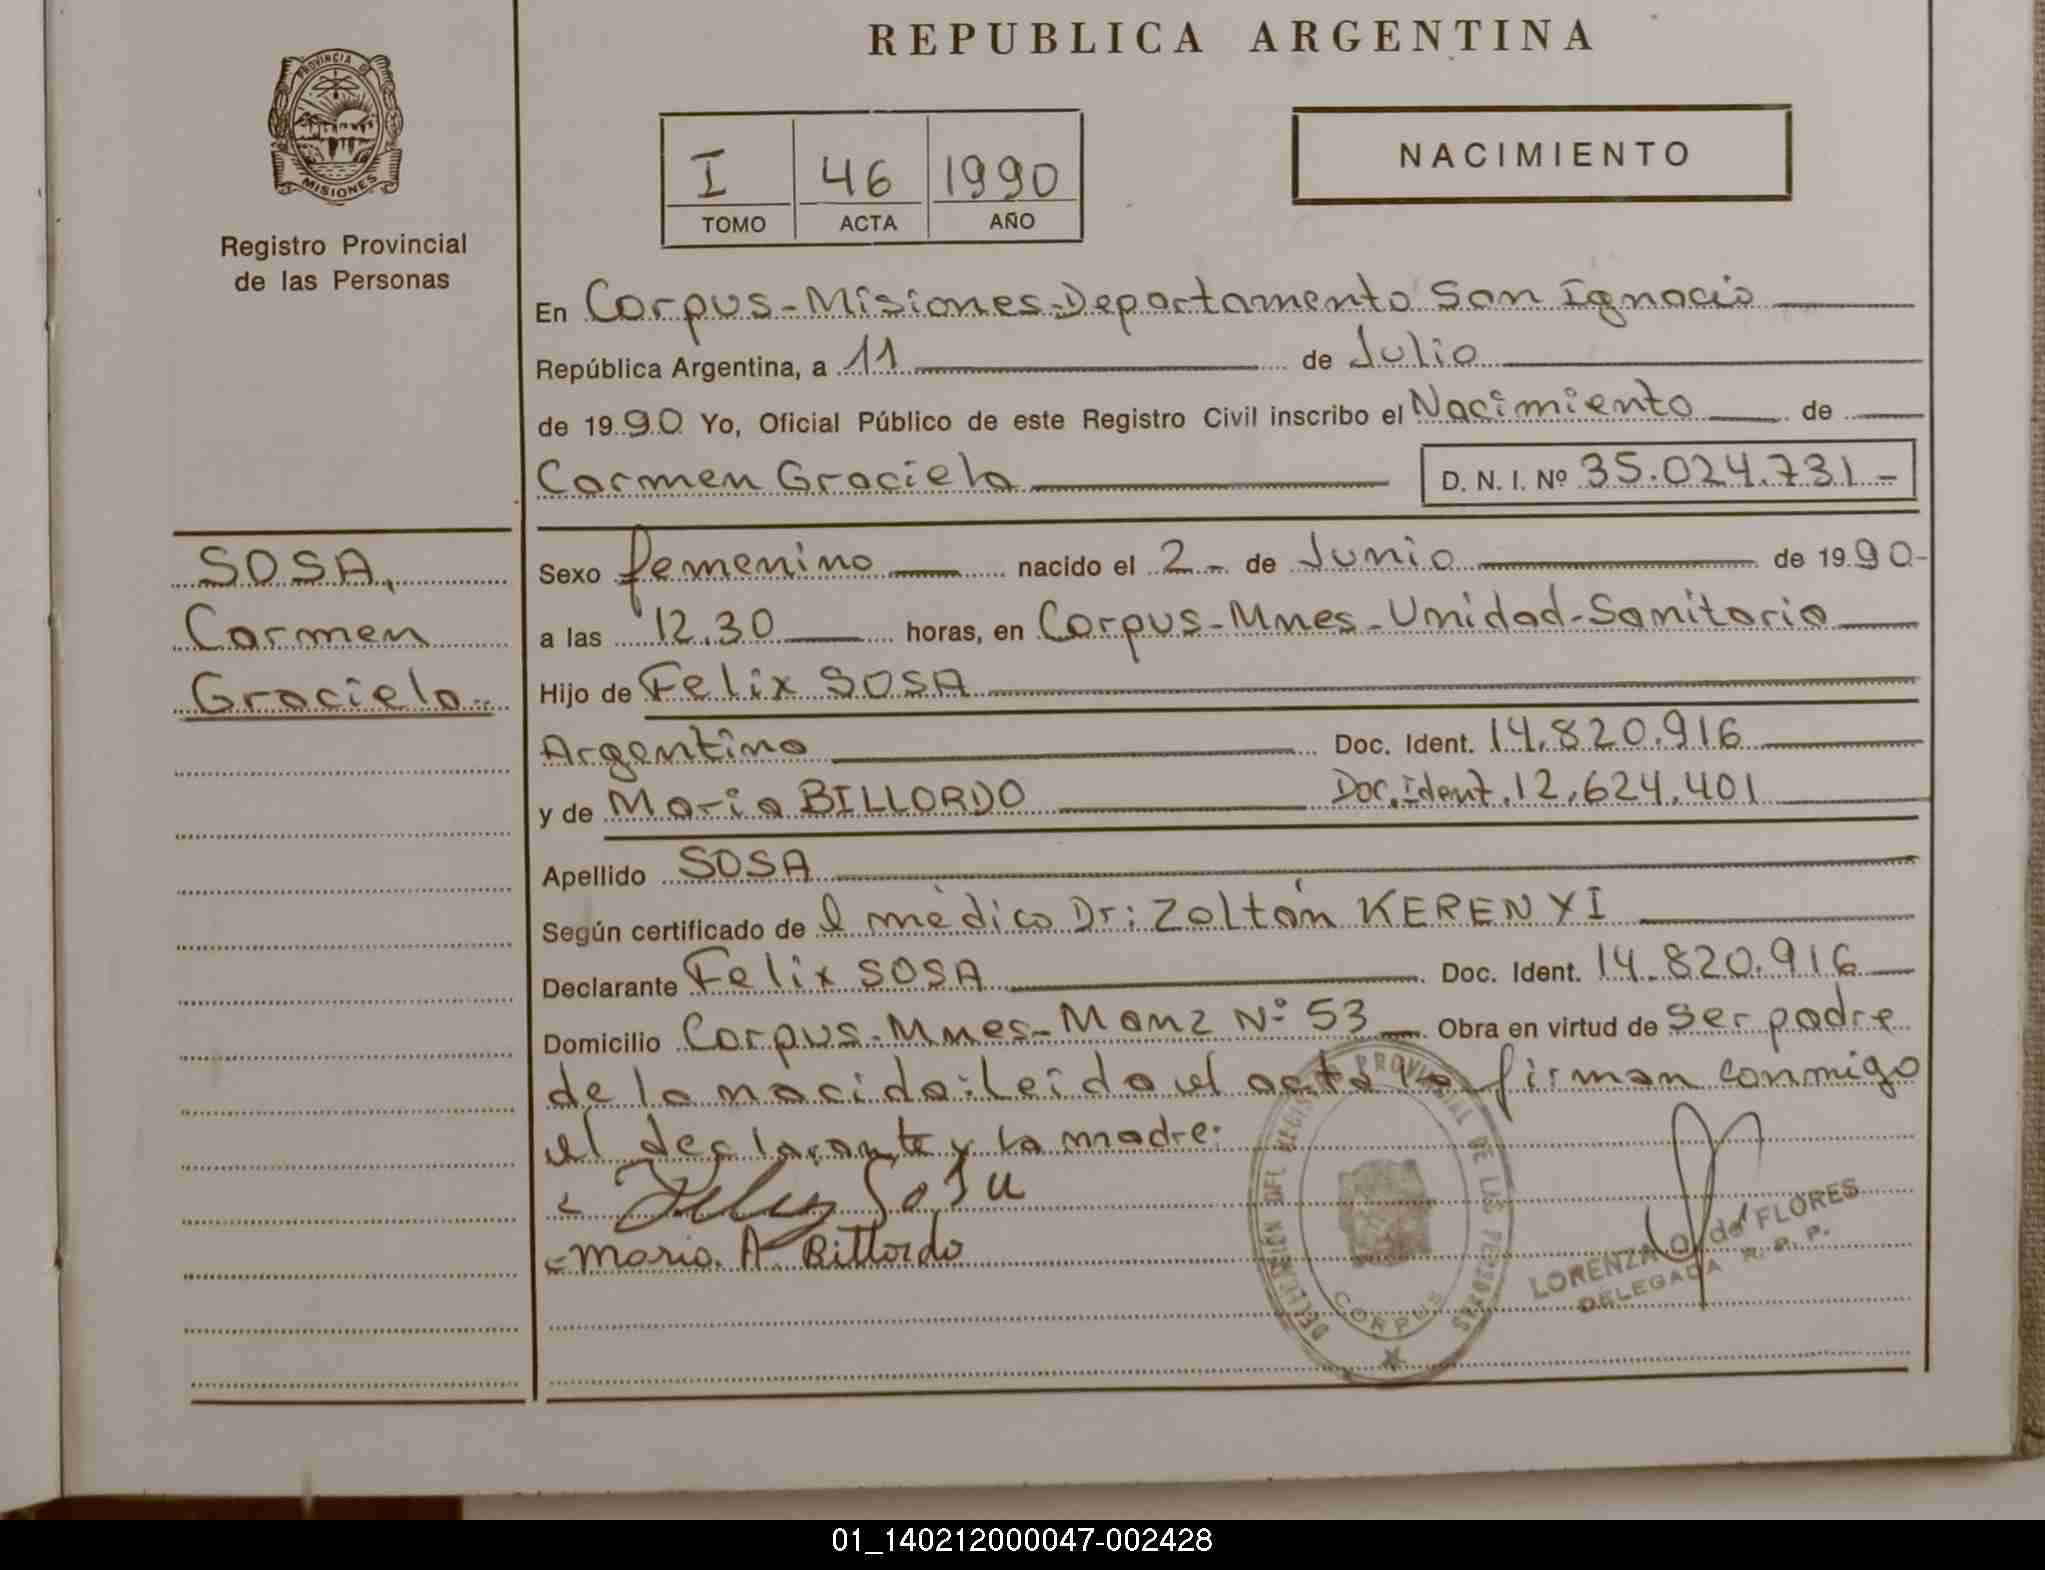 REPUBLICA ARGENTINA
PROVINCIA DE
MISIONES
Registro Provincial
de las Personas
I 46 1990
TOMO ACTA AÑO
NACIMIENTO
En Corpus-Misiones-Departamento San Ignacio
República Argentina, a 11 de Julio
de 1990 Yo, Oficial Público de este Registro Civil inscribo el Nacimiento de
Carmen Graciela D. N. I. Nº 35.024.731-
SOSA,
Carmen
Graciela.-
Sexo femenino nacido el 2- de Junio de 1990-
a las 12.30 horas, en Corpus-Mnes-Unidad-Sanitaria
Hijo de Felix SOSA
Argentino Doc. Ident. 14.820.916
y de Maria BILLORDO Doc. ident. 12.624.401
Apellido SOSA
Según certificado de l médico Dr: Zoltán KERENYI
Declarante Felix SOSA Doc. Ident. 14.820.916
Domicilio Corpus-Mnes-Manz Nº 53 Obra en virtud de ser padre
de la nacida: Leída el acta la firman conmigo
el declarante y la madre:
Felix Sosa
Maria. A. Billordo
DELEGACIÓN DEL REGISTRO PROVINCIAL DE LAS PERSONAS
CORPUS
LORENZA O. de FLORES
DELEGADA R. P. P.
01_140212000047-002428